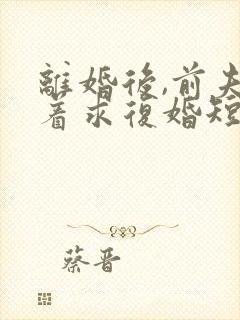 離婚後,前夫
着求復婚短
蔡晋